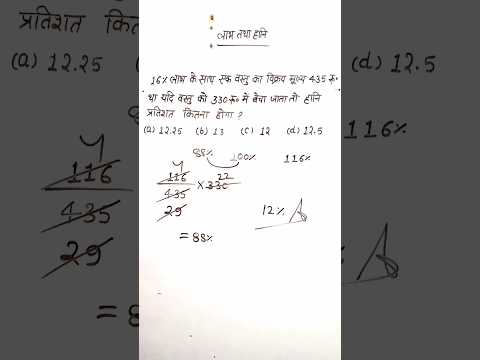 लाभ तथा हानि
16% लाभ के साथ एक वस्तु का विक्रय मूल्य 435 रु०
था यदि वस्तु को 330 रू० में बेचा जाता तो हानि
प्रतिशत कितना होगा ?
(a) 12.25 (b) 13 (c) 12 (d) 12.5
88% 100% 116%
4 22
116 × 330
435
29 12%
= 88%
प्रतिशत कित
(a) 12.25
(d) 12.5
116%
4
116
435
29
= 8